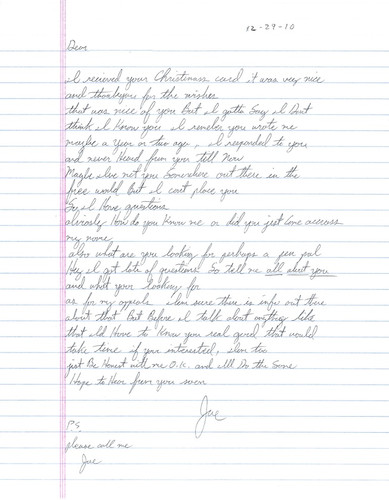 12-29-10
Dear
I recieved your Christmass card it was very nice
and thankyou for the wishes
that was nice of you But I gotta Say I Dont
think I Know you I remeber you wrote me
maybe a year or two ago, I responded to you
and never Heard from you till Now
Maybe Ive met you Somewhere out there in the
free world But I cant place you
So, I Have questions
obviously How do you Know me or did you just Come accross
my name,
also what are you looking for perhaps a pen pal
Hey I got lots of questions So tell me all about you
and what your looking for
as for my appeals Im sure there is info out there
about that But Before I talk about anything like
that Id Have to Know you real good that would
take time if your interested, Im too
just Be Honest with me O.K. and Ill Do the Same
Hope to Hear from you soon
Joe
P.S.
please call me
Joe